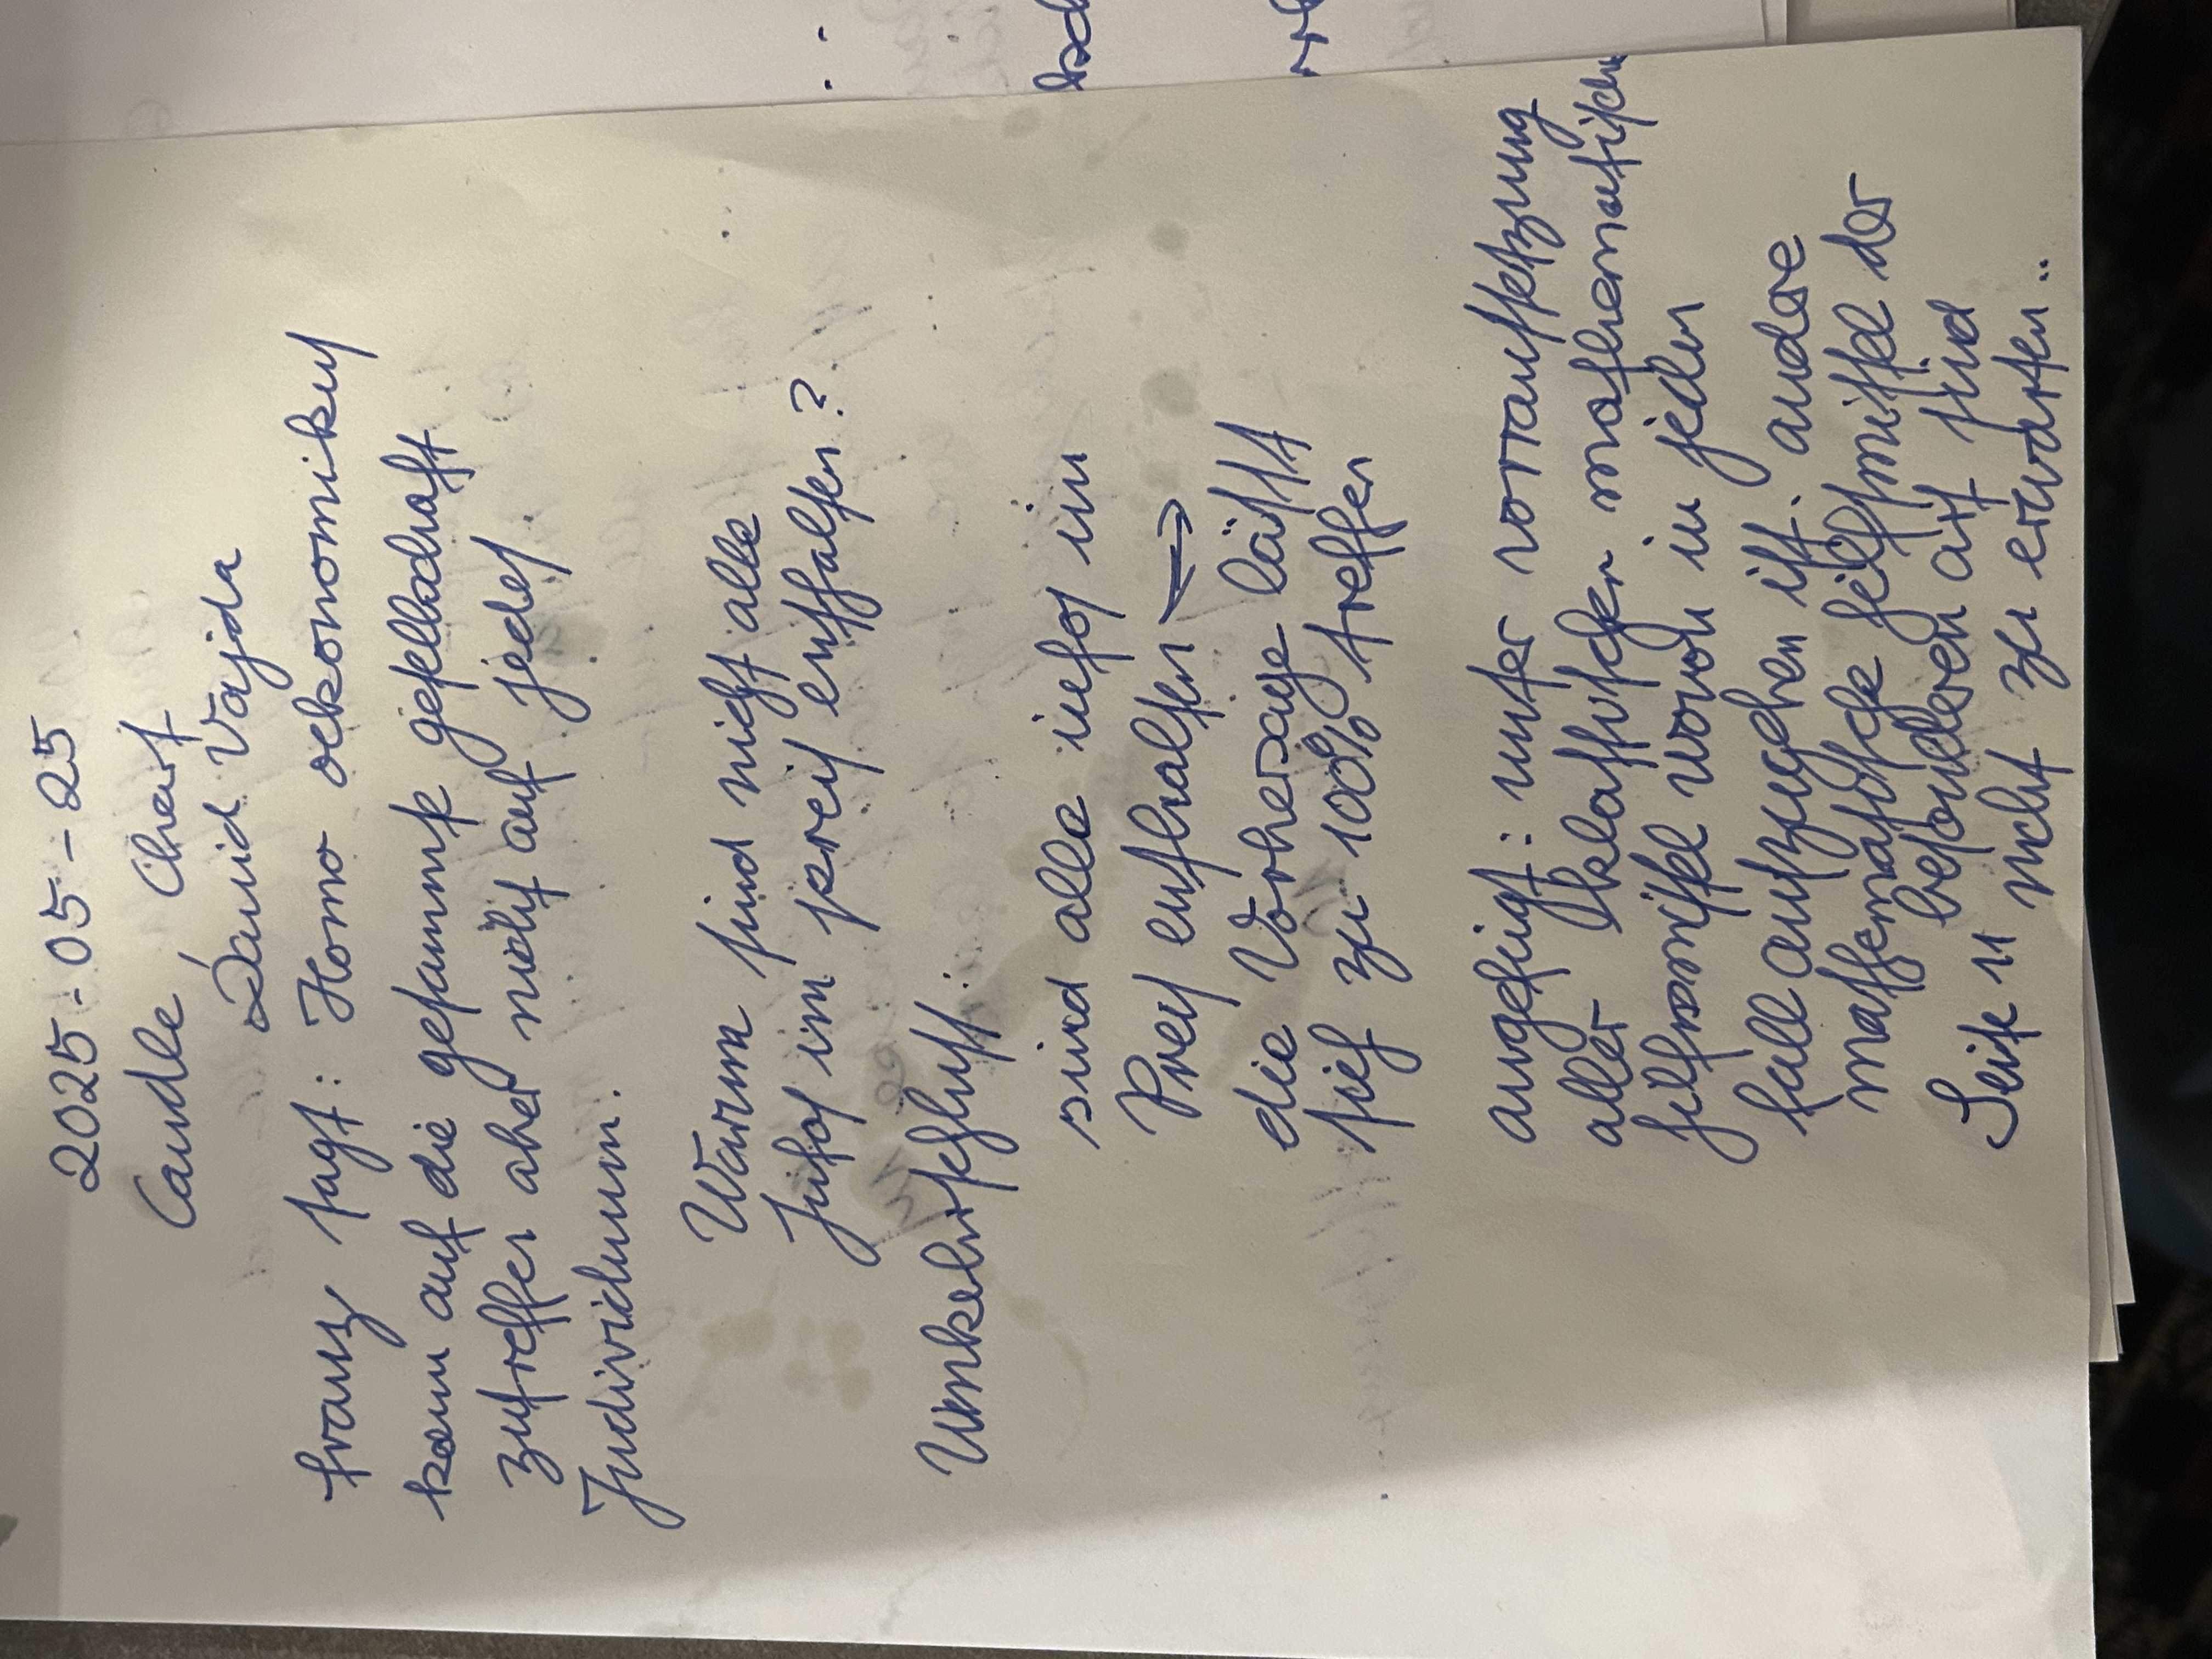 2025-05-25
Candle Chart
David Vajda
franz sagt: Homo oekonomikus
kann auf die gesammte gesellschaft
zutreffen aber nicht auf jedes
Individuum.
Warum sind nicht alle
Infos im preis enthalten?
Umkehrschluss:
sind alle infos im
Preis enthalten ⇔
die Vorhersage lässt
sich zu 100% treffen
angezeigt: unter voraussetzung
aller klassischer mathematischen
hilfsmittel wovon in jeden
fall auszugehen ist. andere
mathematische hilfsmittel der
besonderen art sind
Seite 11 nicht zu erwarten..